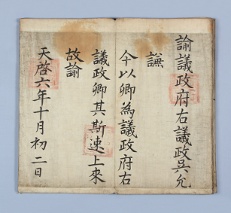 諭議政府右議政吳允
謙
今以卿為議政府右
議政卿其斯速上來
故諭
天啓六年十月初二日